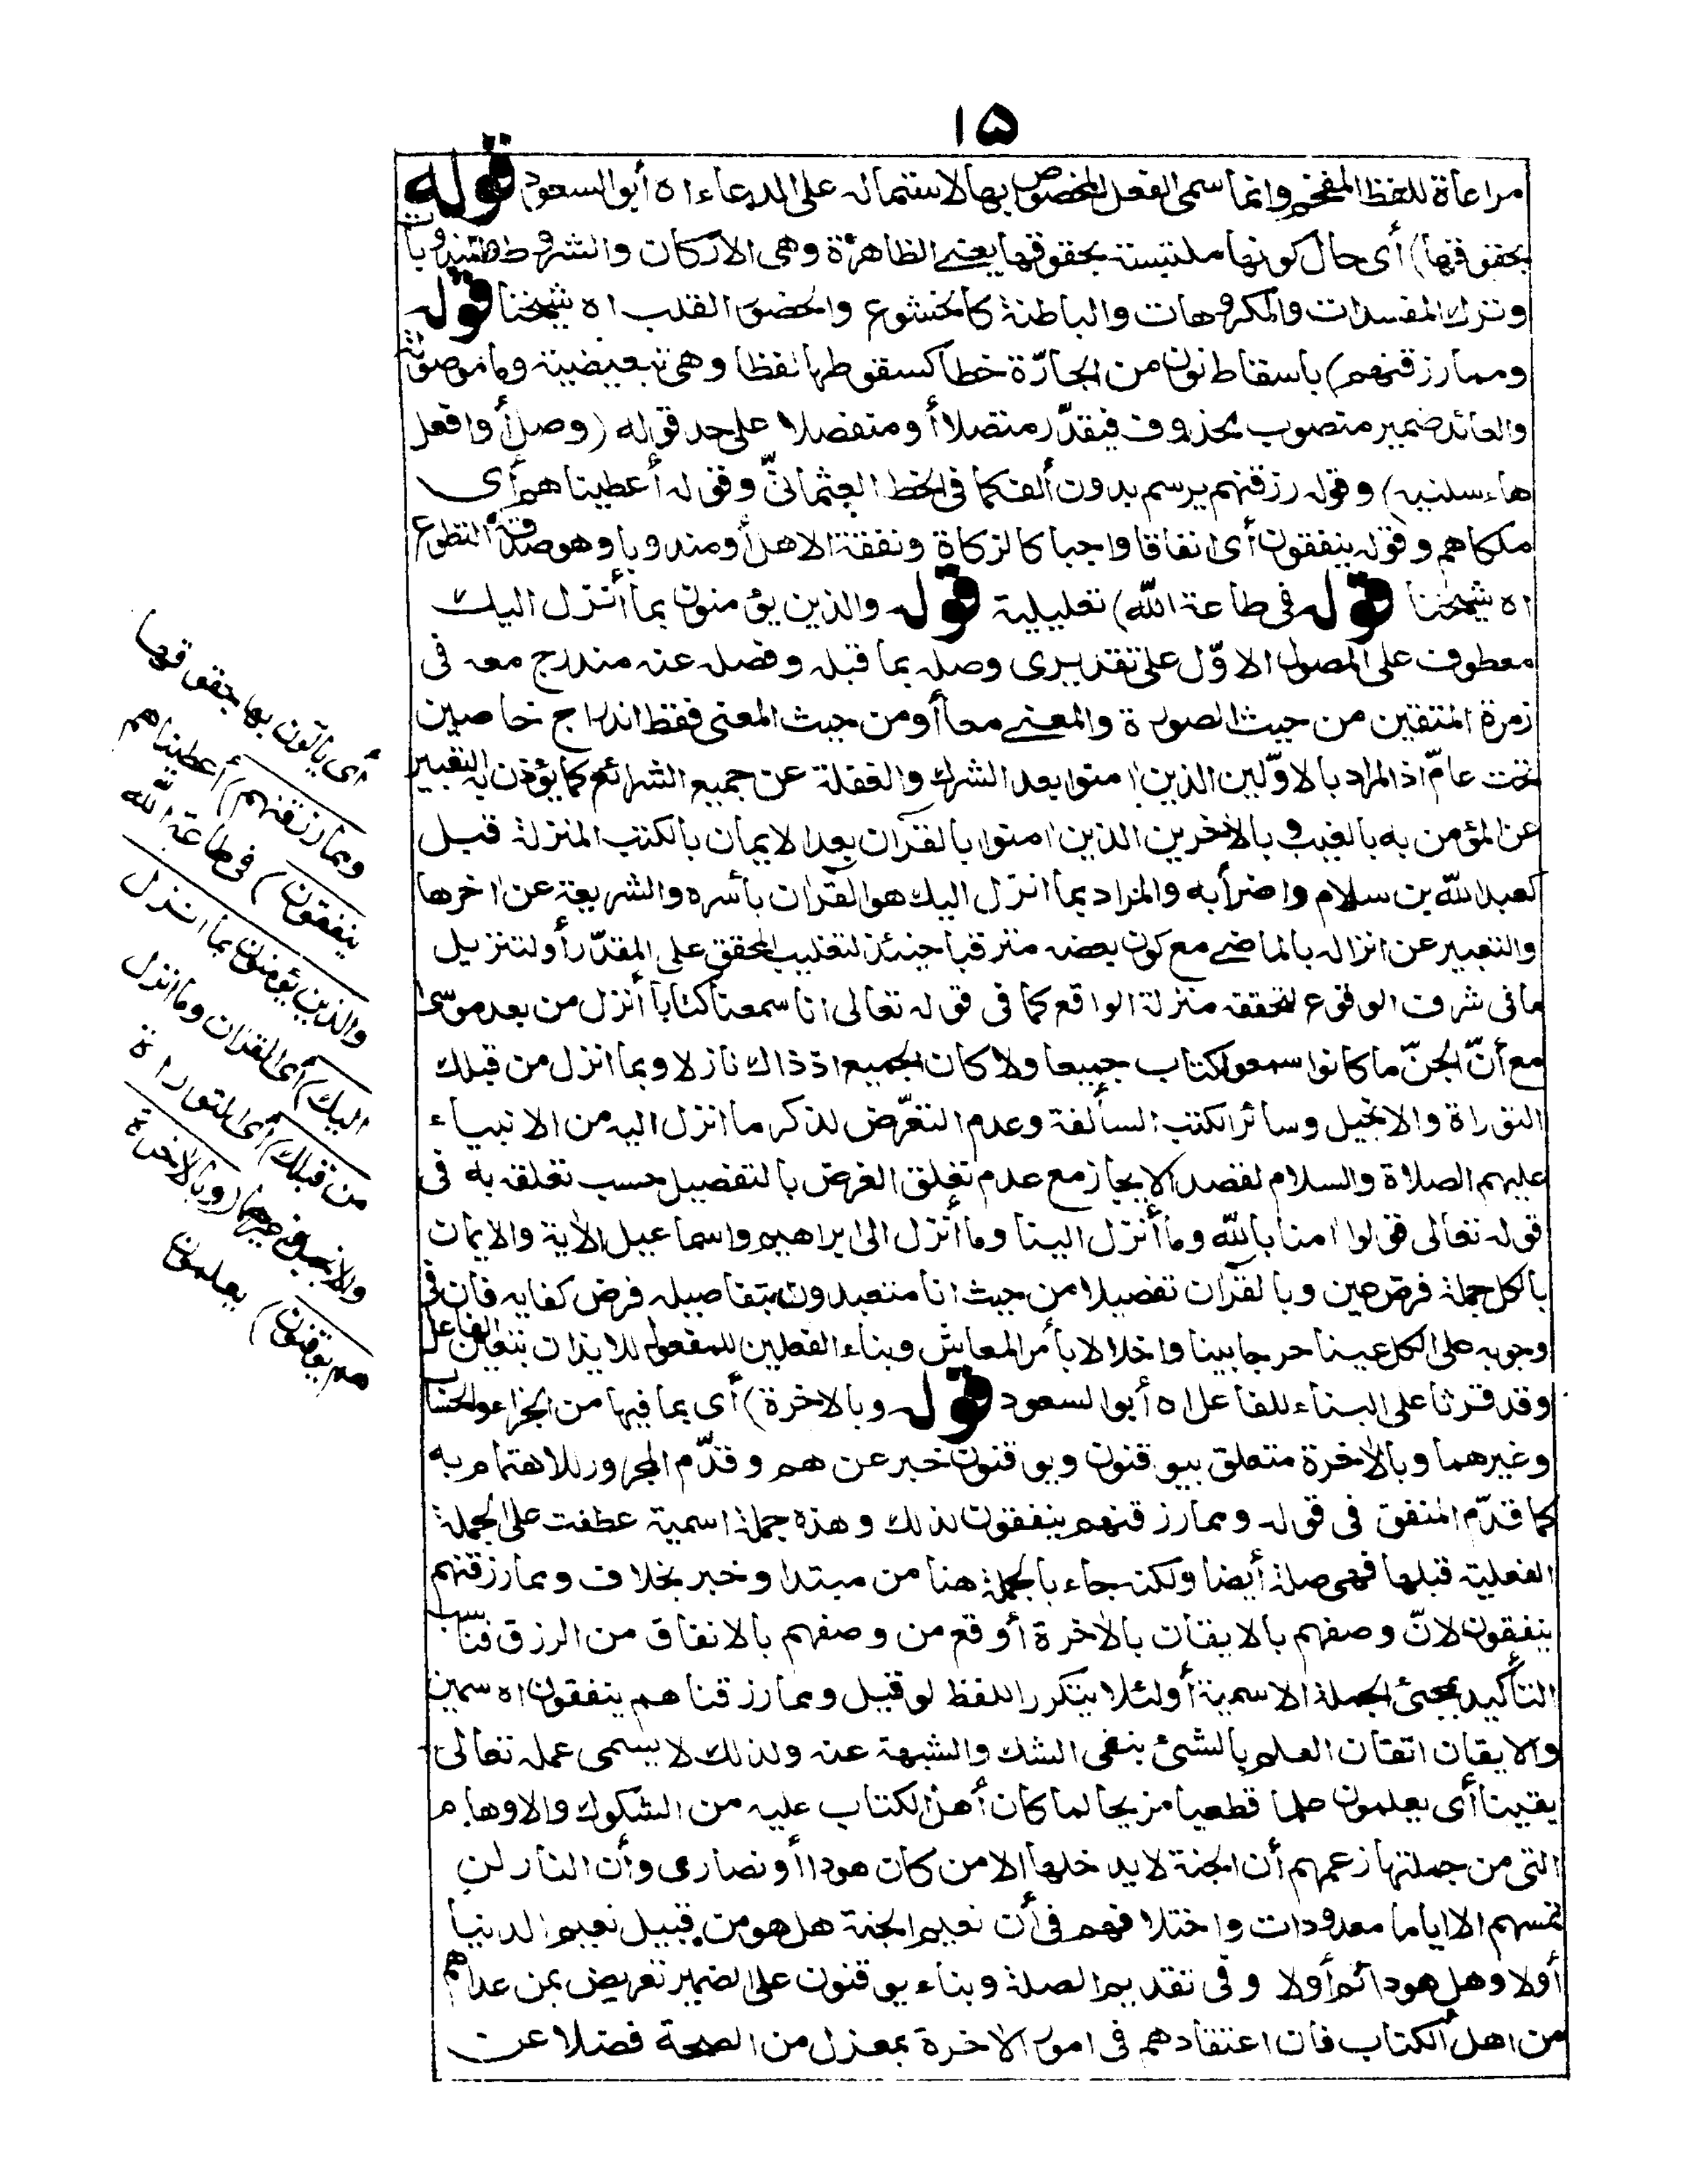 ١٥
مراعاة للفظ المفخم وانما سمى الفعل المخصوص بها لاشتماله على الدعاء اه أبو السعود قوله
بحقوقها) أى حال كونها ملتبسة بحقوقها يعنى الظاهرة وهى الاركان والشروط والمندوبات
وترك المفسدات والمكروهات والباطنة كالخشوع والحضور القلب اه شيخنا قوله
ومما رزقنهم) باسقاط نون من الجارّة خطا كسقوطها لفظا وهى تبعيضية وما موصولة
والعائد ضمير منصوب محذوف فيقدّر متصلا أو منفصلا على حد قوله (وصل أو افصل
هاء سلنيه) وقوله رزقنهم يرسم بدون ألف كما فى الخط العثمانىّ وقوله أعطيناهم أى
ملكاهم وقوله ينفقون أى انفاقا واجبا كالزكاة ونفقة الاهل أو مندوبا وهو صدقة التطوع
اه شيخنا قوله فى طاعة الله) تعليلية قوله والذين يؤمنون بما أنزل اليك
معطوف على الموصول الاوّل على تقديرى وصله بما قبله وفصله عنه مندرج معه فى
زمرة المتقين من حيث الصورة والمعنى معا أو من حيث المعنى فقط اندراج خاصين
تحت عامّ اذ المراد بالاوّلين الذين امنوا بعد الشرك والغفلة عن جميع الشرائع كما يؤذن به التعبير
عن المؤمن به بالغيب وبالآخرين الذين امنوا بالقرآن بعد الايمان بالكتب المنزلة قبل
كعبد الله بن سلام واضرابه والمراد بما انزل اليك هو القرآن بأسره والشريعة عن اخرها
والتعبير عن انزاله بالماضى مع كون بعضه مترقبا حينئذ لتغليب المحقق على المقدّر أو لتنزيل
ما فى شرف الوقوع لتحققه منزلة الواقع كما فى قوله تعالى انا سمعنا كتابا أنزل من بعد موسى
مع أنّ الجنّ ما كانوا سمعوا الكتاب جميعا ولا كان الجميع اذ ذاك نازلا وبما انزل من قبلك
التوراة والانجيل وسائر الكتب السألفة وعدم التعرّض لذكر ما انزل اليه من الانبياء
عليهم الصلاة والسلام لقصد الايجاز مع عدم تعلق الغرض بالتفصيل حسب تعلقه به فى
قوله تعالى قولوا امنا بالله وما أنزل الينا وما أنزل الى ابراهيم واسماعيل الآية والايمان
بالكل جملة فرض عين وبالقرآن تفصيلا من حيث انا متعبدون بتفاصيله فرض كفايه فان فى
وجوبه على الكل عينا حرجا بينا واخلالا بأمر المعاش وبناء الفعلين للمفعول للايذان بتعين الفاعل
وقد قرئا على البناء للفاعل اه أبو السعود قوله وبالاخرة) أى بما فيها من الجزاء والحساب
وغيرهما وبالآخرة متعلق بيوقنون ويوقنون خبر عن هم وقدّم المجرور للاهتمام به
كما قدّم المنفق فى قوله ومما رزقنهم ينفقون لذلك وهذه جملة اسمية عطفت على الجملة
الفعلية قبلها فهى صلة أيضا ولكنه جاء بالجملة هنا من مبتدا وخبر بخلاف ومما رزقنهم
ينفقون لانّ وصفهم بالايقان بالآخرة أوقع من وصفهم بالانفاق من الرزق فناسب
التأكيد بمجئ الجملة الاسمية أو لئلا يتكرر اللفظ لو قيل ومما رزقناهم ينفقون اه سمين
والايقان اتقان العلم بالشئ بنفى الشك والشبهة عنه ولذلك لا يسمى عمله تعالى
يقينا أى يعلمون علما قطعيا مزيحا لما كان أهل الكتاب عليه من الشكوك والاوهام
التى من جملتها زعمهم أن الجنة لا يدخلها الا من كان هودا أو نصارى وأن النار لن
تمسهم الا اياما معدودات واختلافهم فى أن نعيم الجنة هل هو من قبيل نعيم الدنيا
أولا وهل هو دائم أولا وفى تقديم الصلة وبناء يوقنون على الضمير تعريض بمن عداهم
من اهل الكتاب فان اعتقادهم فى امور الآخرة بمعزل من الصحة فضلا عن
أى يأتون بها بحقوقها
ومما رزقنهم) أعطيناهم
ينفقون) فى طاعة الله
والذين يؤمنون بما انزل
اليك) أى القرآن وما انزل
من قبلك) أى التوراة
والانجيل وغيرهما (وبالآخرة
هم يوقنون) يعلمون